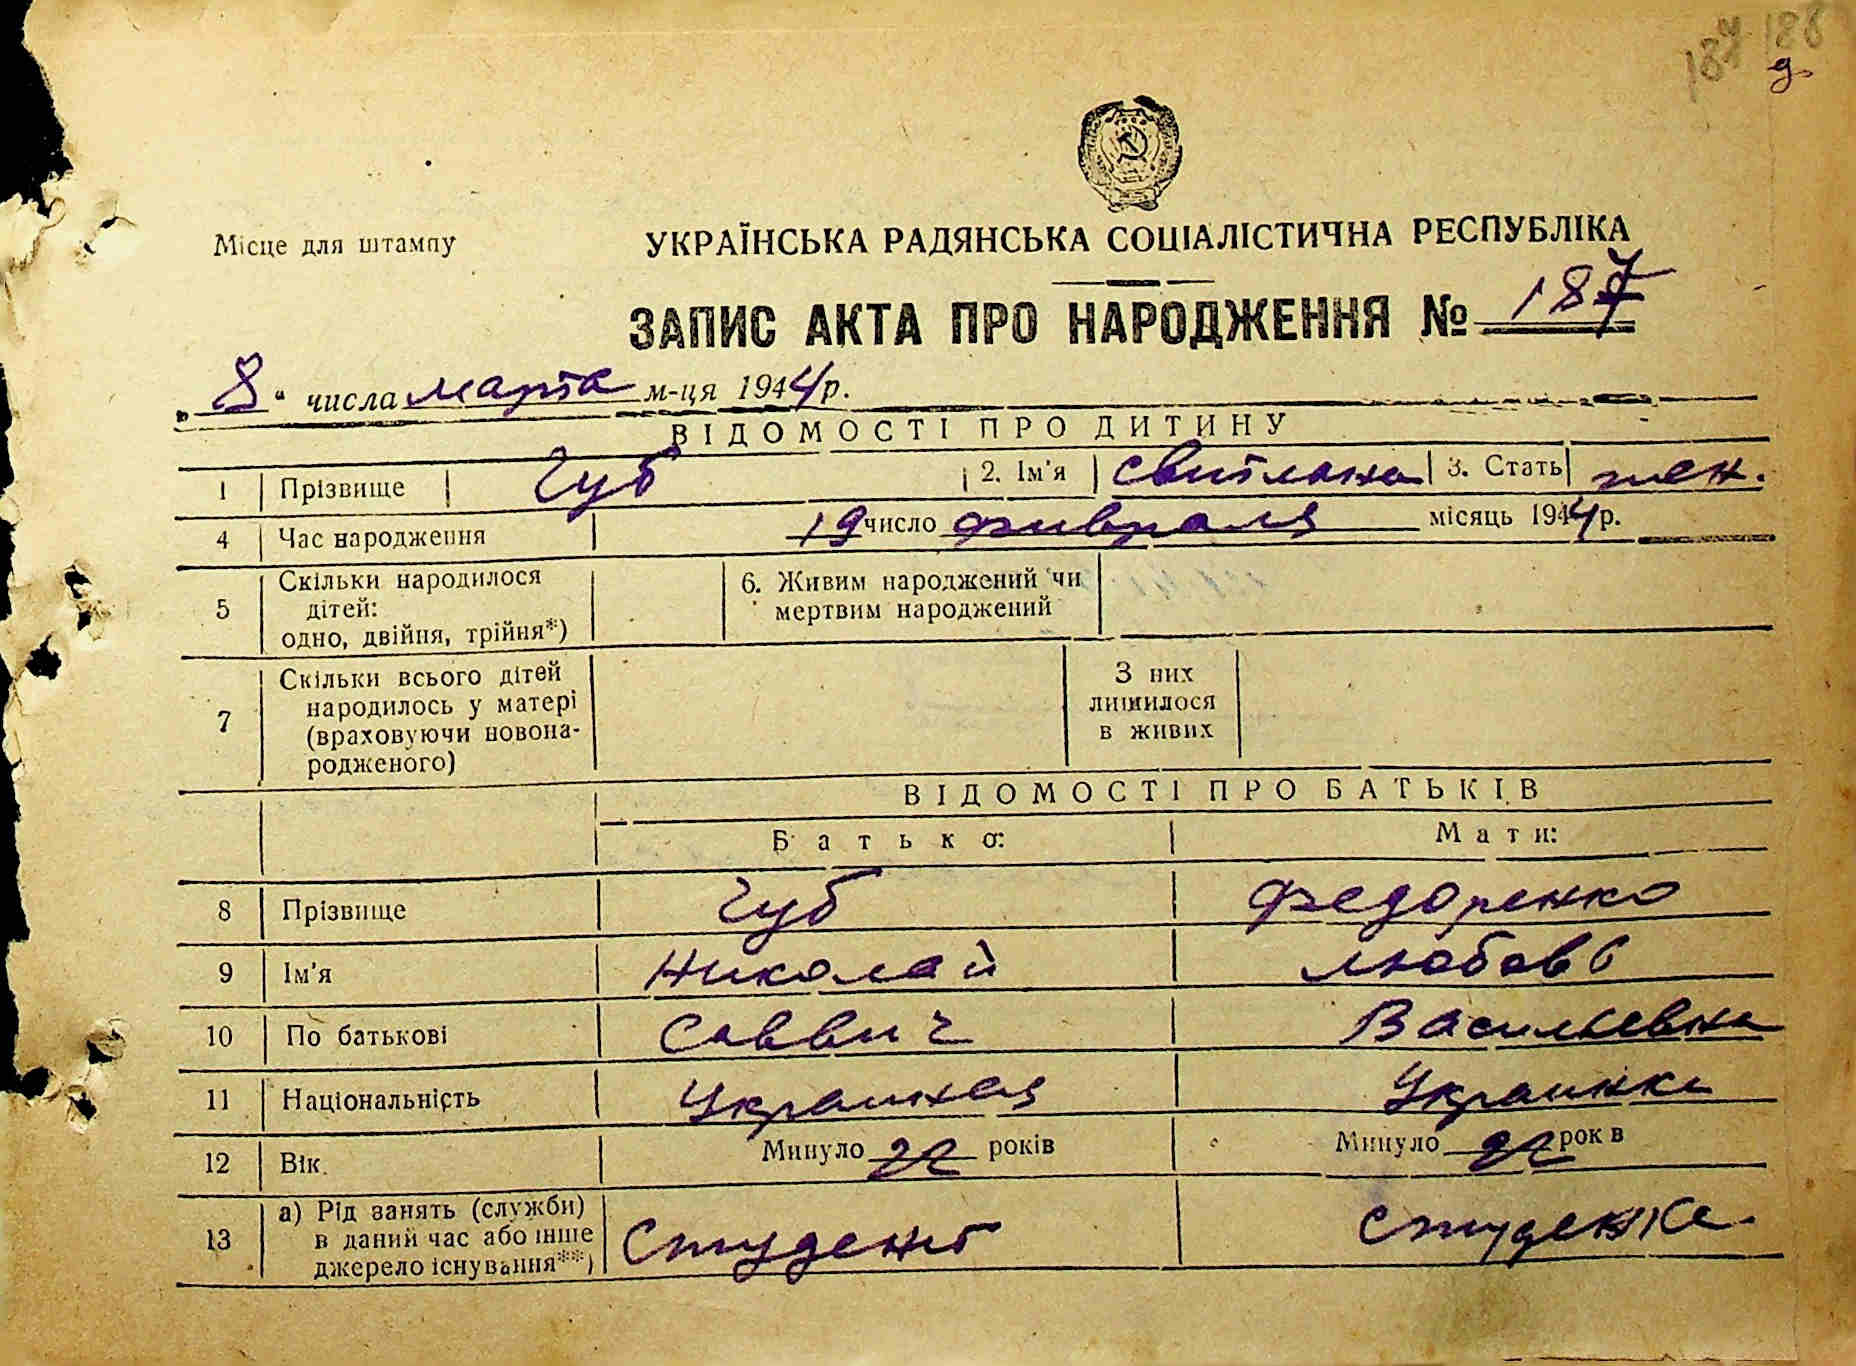 187 188
д.
Місце для штампу
УКРАЇНСЬКА РАДЯНСЬКА СОЦІАЛІСТИЧНА РЕСПУБЛІКА
ЗАПИС АКТА ПРО НАРОДЖЕННЯ № 187
„ 8 “ числа марта м-ця 1944 р.
ВІДОМОСТІ ПРО ДИТИНУ
1 Прізвище Чуб 2. Ім'я Світлана 3. Стать жен.
4 Час народження 19 число февраля місяць 1944 р.
5 Скільки народилося
дітей:
одно, двійня, трійня*)
6. Живим народжений чи
мертвим народжений
7 Скільки всього дітей
народилось у матері
(враховуючи новона-
родженого)
З них
лишилося
в живих
ВІДОМОСТІ ПРО БАТЬКІВ
Батько: Мати:
8 Прізвище Чуб Федоренко
9 Ім'я Николай Любовь
10 По батькові Саввич Васильевна
11 Національність Украинец Украинка
12 Вік. Минуло 22 років Минуло 22 рок в
13 а) Рід занять (служби)
в даний час або інше
джерело існування**)
Студент Студентка.